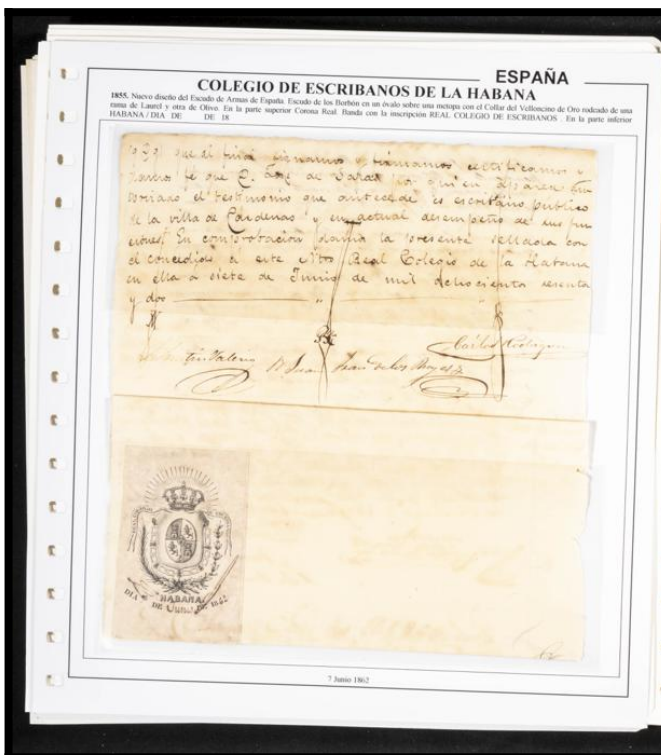 ESPAÑA
COLEGIO DE ESCRIBANOS DE LA HABANA
1855. Nuevo diseño del Escudo de Armas de España. Escudo de los Borbón en un óvalo sobre una metopa con el Collar del Velloncino de Oro rodeado de una
rama de Laurel y otra de Olivo. En la parte superior Corona Real. Banda con la inscripción REAL COLEGIO DE ESCRIBANOS . En la parte inferior
HABANA / DIA DE DE 18
signamos y firmamos certificamos y
que D. José de por quien aparece
el testimonio que antecede es escribano publico
de la villa de Cardenas y en actual desempeño de sus fun
ciones. En comprobacion damos la presente sellada con
el concedido á este Ntro Real Colegio de la Habana
en ella á siete de Junio de mil ochocientos sesenta
y dos
Carlos Rodriguez
Valerio
Juan de los Reyes
HABANA
DIA 7 DE Junio DE 1862
7 Junio 1862